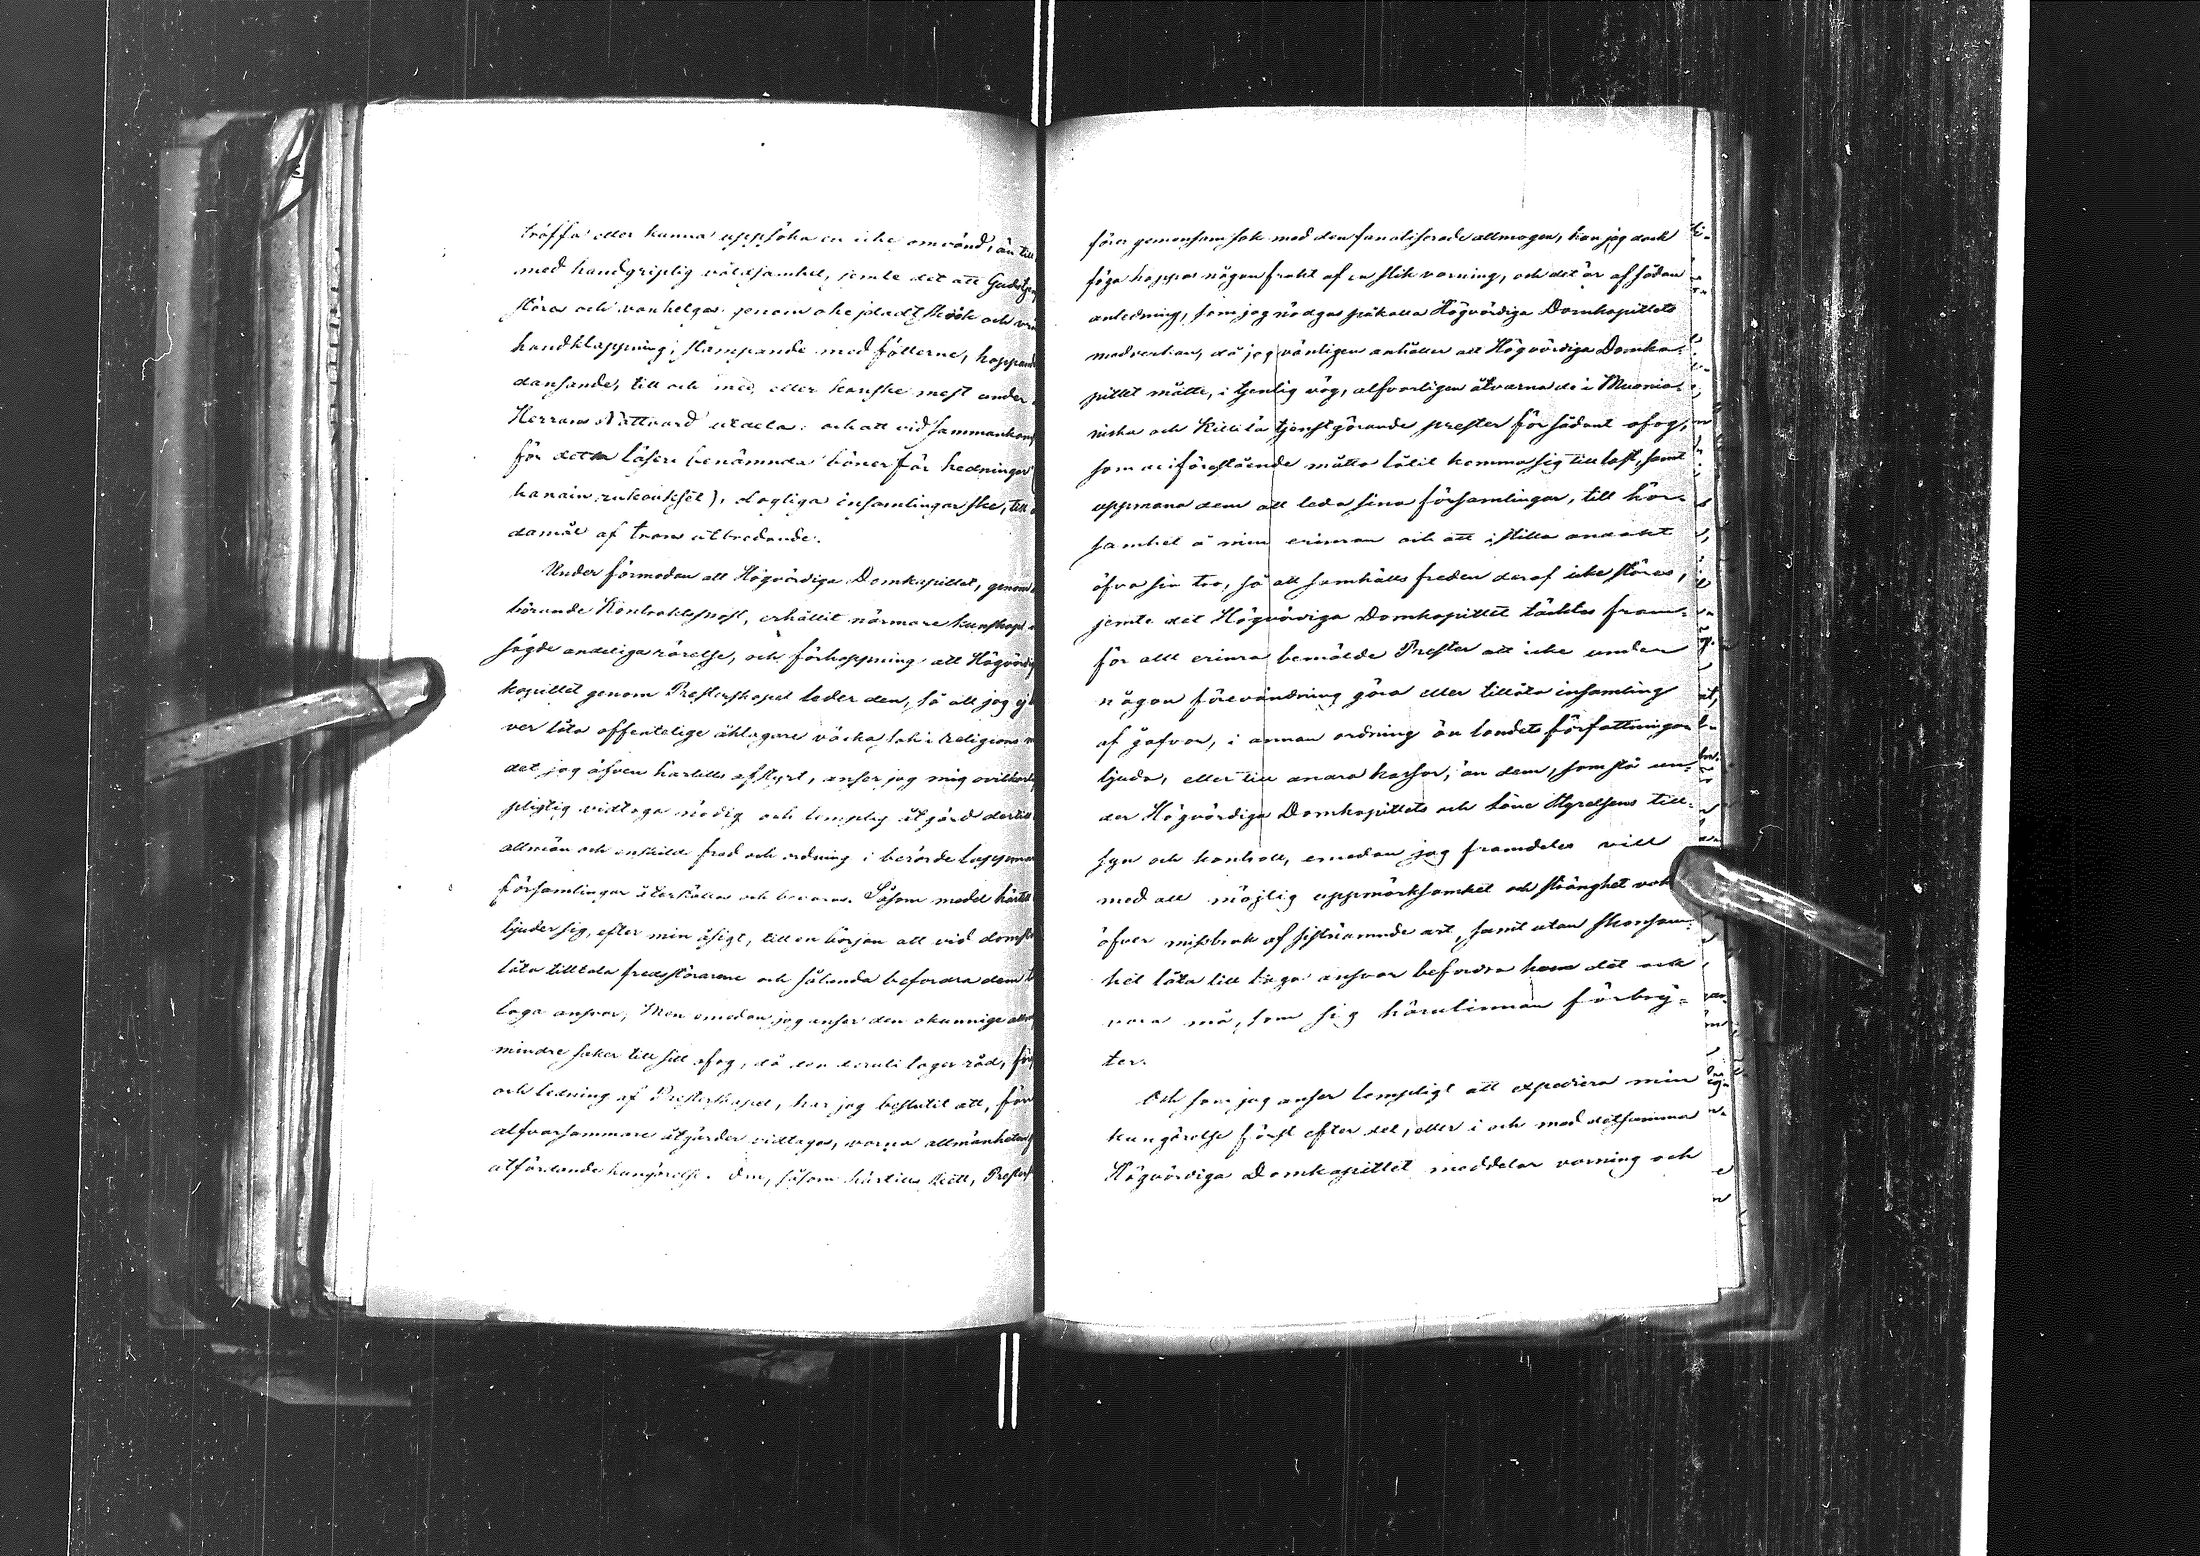 träffa eller kunna uppsöka en icke omvänd, än till
med handgriplig våldsamhet, jemte det att Gudstjen
störes och vanhelgas genom ohejdadt skrik och
handklappning, stampande med fötterne, hoppande
dansande, till och med, eller kanske mest under
Herrans Nattvard utdelas: och att vid sammankomst
för detta läseri benämnda böner för hedningar
dagliga insamlingar ske, till
damål af trons utbredande.
Under förmodan att Högvördiga Domkapitlet, genom
hörande Kontraktsprost, erhållit närmare kunskap
sagde andeliga rörelse, och förhoppning att Högvördig
kapitlet genom Presterskapet leder den, så att jag ej
ver låta offentelige åklagare väcka sak i religions
det jag äfven härtills afstyrt, anser jag mig ovilkorl
pligtig vidtaga nödig och lemplig åtgärd dertill
allmän och enskild fred och ordning i berörde Lappmar
församlingar återställas och bevaras. Såsom medel härtill
bjuder sig, efter min åsigt, till en början att vid domst
låta tilltala fredsstörarene och sålunda befordra dem
laga ansvar; Men emedan jag anser den okunnige allm
mindre saker till sitt ofog, då den deruti lager råd, för
och ledning af Presterskapet, har jag beslutit att, för
alfvarsammare åtgärder vidtagas, varna allmänheten
utfärdande kungörelse. Om, såsom härtills skett, Prestersk
förer gemensam sak med den fanatiserade allmogen, kan jag dock
föga hoppas någon frukt af en slik varning, och det är af sådan
anledning, som jag nödgas påkalla Högvördiga Domkapitlets
medverkan, då jag vänligen anhåller att Högvördiga Domka-
pitlet måtte, i tjenlig väg, alfvarligen åtvarna de i Muonio-
niska och Kittilä tjenstgörande prester för sådant ofog,
som de i förestående måtto låtit komma sig till last, samt
uppmana dem att leda sina församlingar, till hör-
samhet å min erinran och att i stilla andakt
öfva sin tro, så att samhälls freden deraf icke störes,
jemte det Högvördiga Domkapitlet täcktes fram-
för allt erinra bemälde Prester att icke under
någon förevändning göra eller tillåta insamling
af gåfvor, i annan ordning än landets författningar
bjuda, eller till andra kassor, än dem, som stå un-
der Högvördiga Domkapitlets och Läne Styrelsens till-
syn och kontroll, emedan jag framdeles vill
med all möjlig uppmärksamhet och stränghet vaka
öfver missbruk af sistnämnde art, samt utan skonsam-
het låta till laga ansvar befordra hvem det ock
vara må, som sig härutinnan förbry-
ter.
Och som jag anser lempligt att expediera min
kungörelse först efter det, eller i och med detsamma
Högvördiga Domkapitlet meddelar varning och